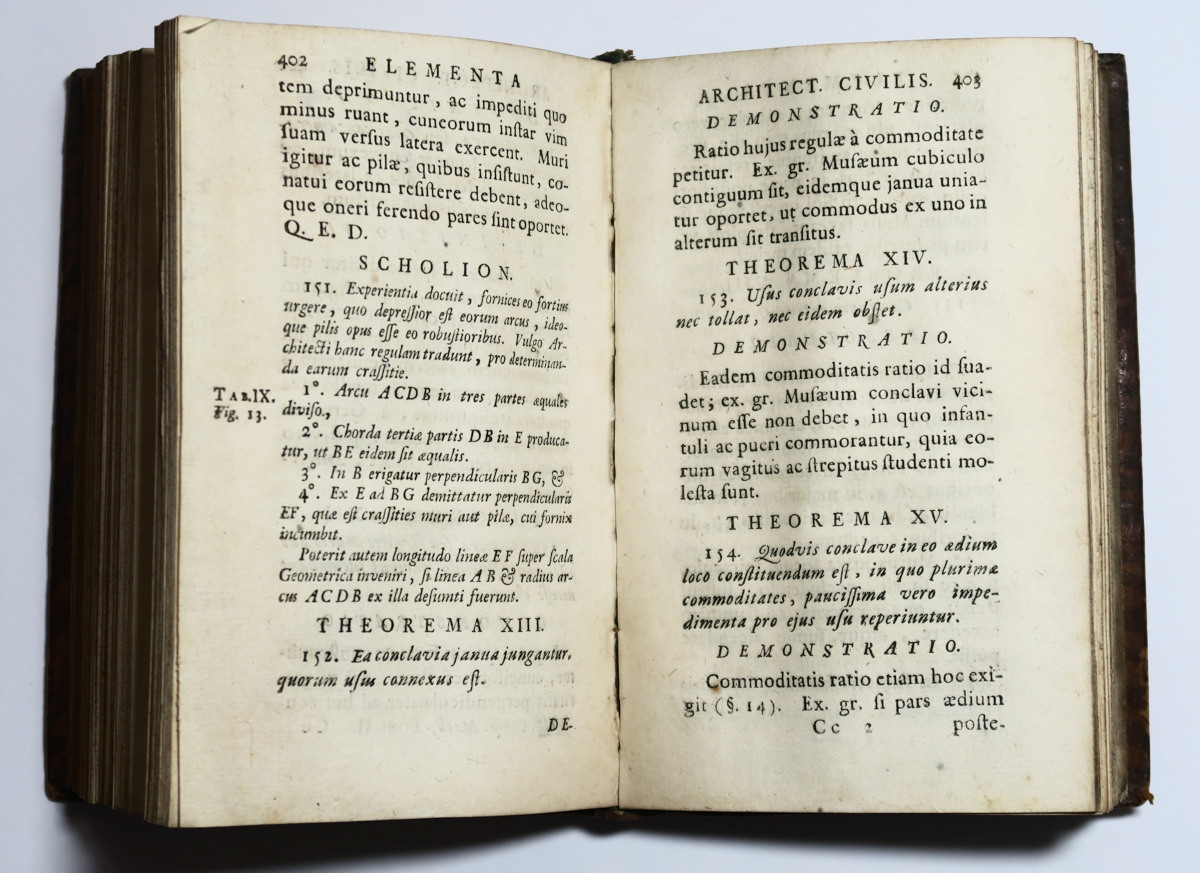 402 ELEMENTA
tem deprimuntur, ac impediti quo
minus ruant, cuneorum inſtar vim
ſuam verſus latera exercent. Muri
igitur ac pilæ, quibus inſiſtunt, co-
natui eorum reſiſtere debent, adeo-
que oneri ferendo pares ſint oportet.
Q. E. D.
SCHOLION.
151. Experientia docuit, fornices eo fortius
urgere, quo depreſſior eſt eorum arcus, ideo-
que pilis opus eſſe eo robuſtioribus. Vulgo Ar-
chitecti hanc regulam tradunt, pro determinan-
da earum craſſitie.
TAB. IX.
Fig. 13.
1°. Arcu ACDB in tres partes æquales
diviſo.,
2°. Chorda tertiæ partis DB in E produca-
tur, ut BE eidem ſit æqualis.
3°. In B erigatur perpendicularis BG, &
4°. Ex E ad BG demittatur perpendicularis
EF, quæ eſt craſſities muri aut pilæ, cui fornix
incumbit.
Poterit autem longitudo lineæ EF ſuper ſcala
Geometrica inveniri, ſi linea AB & radius ar-
cus ACDB ex illa deſumti fuerunt.
THEOREMA XIII.
152. Ea conclavia janua jungantur,
quorum uſus connexus eſt.
DE-
ARCHITECT. CIVILIS. 403
DEMONSTRATIO.
Ratio hujus regulæ à commoditate
petitur. Ex. gr. Muſæum cubiculo
contiguum ſit, eidemque janua unia-
tur oportet, ut commodus ex uno in
alterum ſit tranſitus.
THEOREMA XIV.
153. Uſus conclavis uſum alterius
nec tollat, nec eidem obſtet.
DEMONSTRATIO.
Eadem commoditatis ratio id ſua-
det; ex. gr. Muſæum conclavi vici-
num eſſe non debet, in quo infan-
tuli ac pueri commorantur, quia eo-
rum vagitus ac ſtrepitus ſtudenti mo-
leſta ſunt.
THEOREMA XV.
154. Quodvis conclave in eo ædium
loco conſtituendum eſt, in quo plurimæ
commoditates, pauciſſima vero impe-
dimenta pro ejus uſu reperiuntur.
DEMONSTRATIO.
Commoditatis ratio etiam hoc exi-
git (§. 14). Ex. gr. ſi pars ædium
Cc 2 poſte-